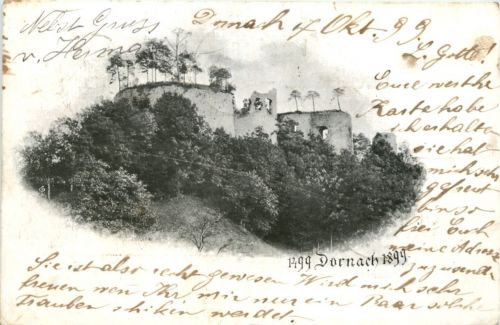 Nebst Gruss
v. Herma
Dornach 7 Okt. 99
L. Gotte!
Eure werthe
Karte habe
ich erhalten
sie hat
mich sehr
gefreut
so
sei Euch
meine Adres
zusend
1499 Dornach 1899
Sie ist also recht gewesen Wird mich sehr
freuen wen Ihr mir nur ein Paar solche
trauben shiken werdet